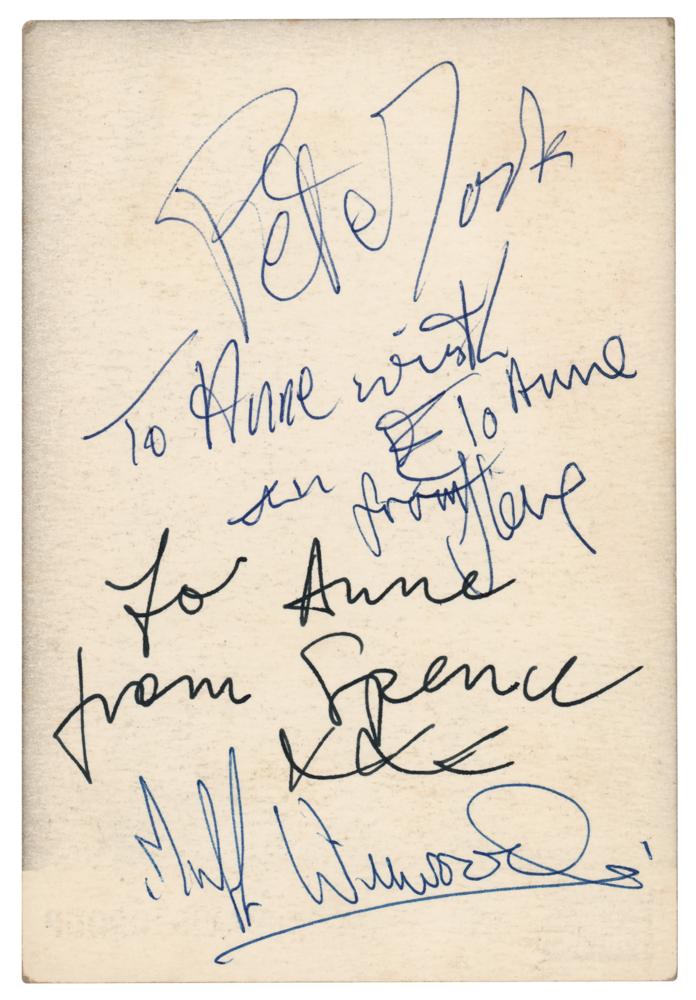 Pete York
To Anne with
To Anne
from Steve
To Anne
from Spence
XXX
Muff Winwood